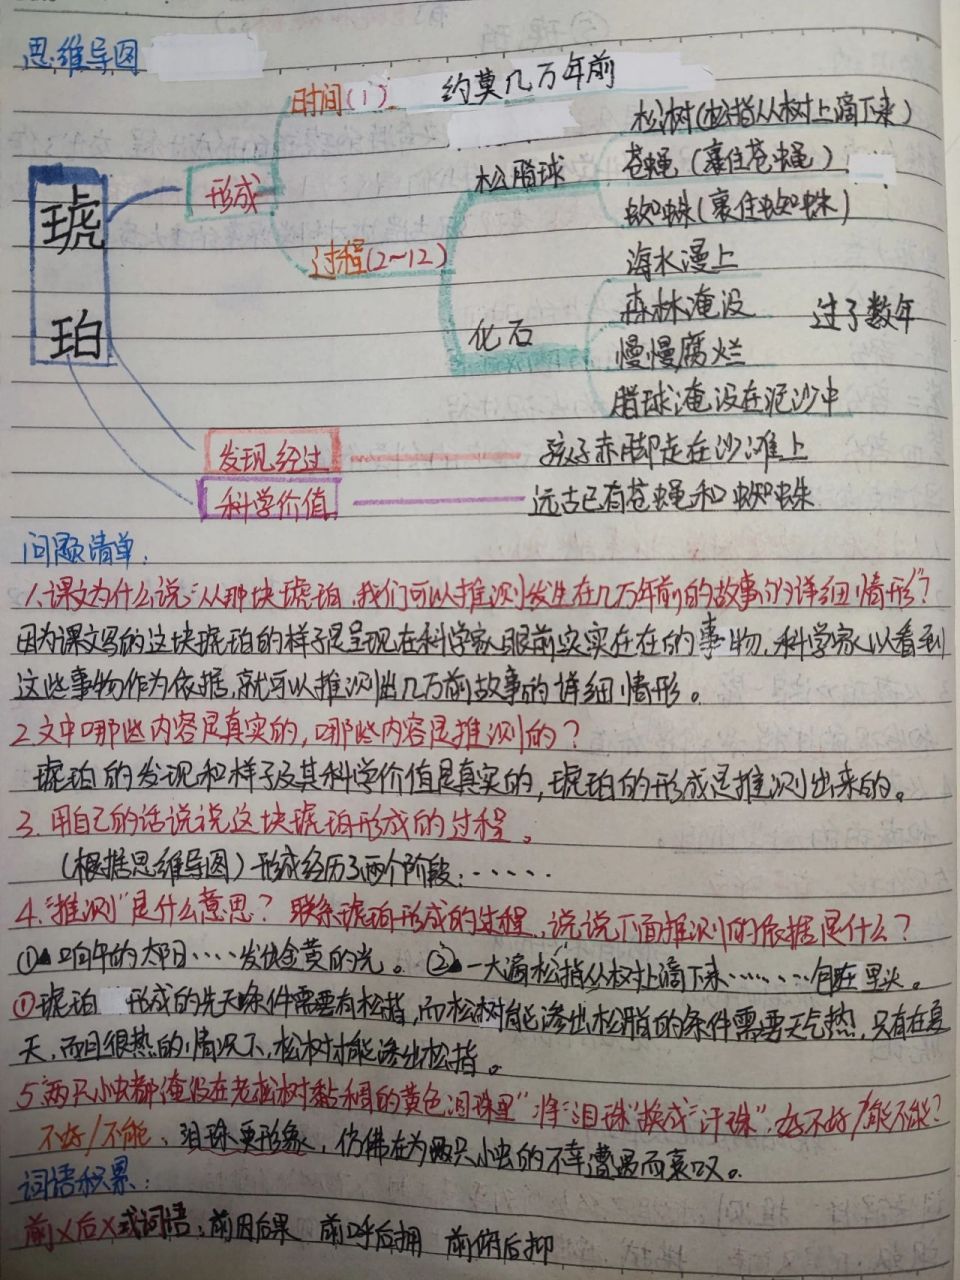 思维导图
时间(1)
约莫几万年前
琥珀
形成
松脂球
松树(松指从树上滴下来)
苍蝇(裹住苍蝇)
蜘蛛(裹住蜘蛛)
过程(2~12)
化石
海水漫上
森林淹没
慢慢腐烂
脂球淹没在泥沙中
过了数年
发现经过
孩子赤脚走在沙滩上
科学价值
远古已有苍蝇和蜘蛛
问题清单:
1、课文为什么说"从那块琥珀,我们可以推测发生在几万年前的故事的详细情形"?
因为课文写的这块琥珀的样子是呈现在科学家眼前实实在在的事物,科学家以看到
这些事物作为依据,就可以推测出几万前故事的详细情形。
2.文中哪些内容是真实的,哪些内容是推测的?
琥珀的发现和样子及其科学价值是真实的,琥珀的形成是推测出来的。
3.用自己的话说说这块琥珀形成的过程。
(根据思维导图)形成经历了两个阶段:……
4."推测"是什么意思?联系琥珀形成的过程,说说下面推测的依据是什么?
①晌午的太阳……发快金黄的光。②一大滴松指从树上滴下来………包在里头。
①琥珀形成的先天条件需要有松指,而松树能渗出松脂的条件需要天气热,只有在夏
天,而且很热的情况下,松树才能渗出松指。
5"两只小虫都淹没在老松树黏稠的黄色泪珠里"将"泪珠"换成"汗珠",好不好/能不能?
不好/不能、泪珠更形象,仿佛在为两只小虫的不幸遭遇而哀叹。
词语积累:
前X后X式词语:前因后果 前呼后拥 前俯后仰